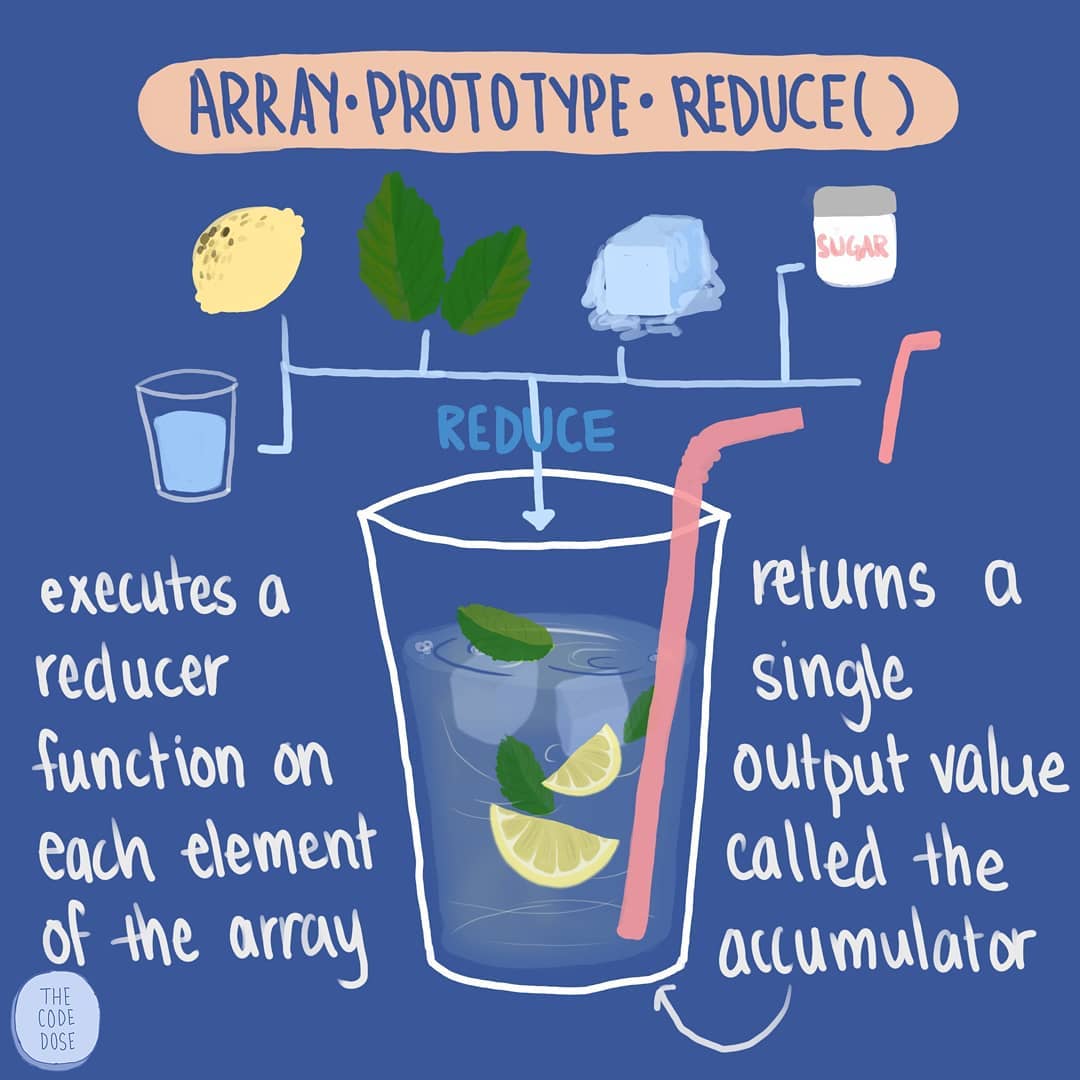 ARRAY•PROTOTYPE•REDUCE()
SUGAR
REDUCE
executes a
reducer
function on
each element
of the array
returns a
single
output value
called the
accumulator
THE
CODE
DOSE